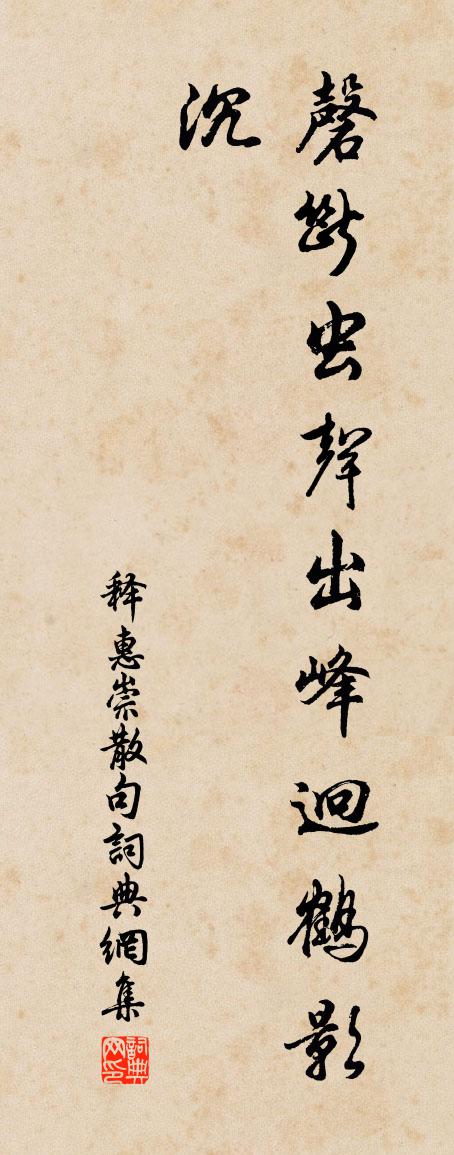 磬斷虫聲出峰迴鶴影
沉
释惠崇散句詞典網集
詞典网印